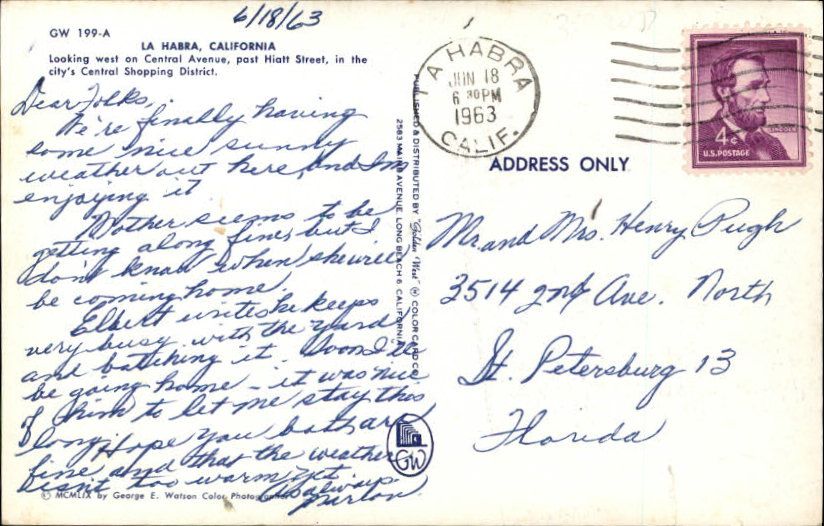 6/18/63
GW 199-A
LA HABRA, CALIFORNIA
Looking west on Central Avenue, past Hiatt Street, in the
city's Central Shopping District.
Dear Folks,
We're finally having
some nice sunny
weather out here, and I'm
enjoying it.
Mother seems to be
getting along fine, but I
don't know when she will
be coming home.
Elbert writes he keeps
very busy with the yard
and batching it. Soon I'll
be going home - it was nice
of him to let me stay this
long. Hope you both are
fine and that the weather
isn't too warm yet.
As always
© MCMLIX by George E. Watson Color Photographer
PUBLISHED & DISTRIBUTED BY "Golden West" ® COLOR CARD CO.
2583 MAINE AVENUE, LONG BEACH 6, CALIFORNIA
GW
LA HABRA
JUN 18
6 30 PM
1963
CALIF.
4¢
LINCOLN
U.S. POSTAGE
ADDRESS ONLY
Mr. and Mrs. Henry Pugh
3514 2nd Ave. North
St. Petersburg 13
Florida